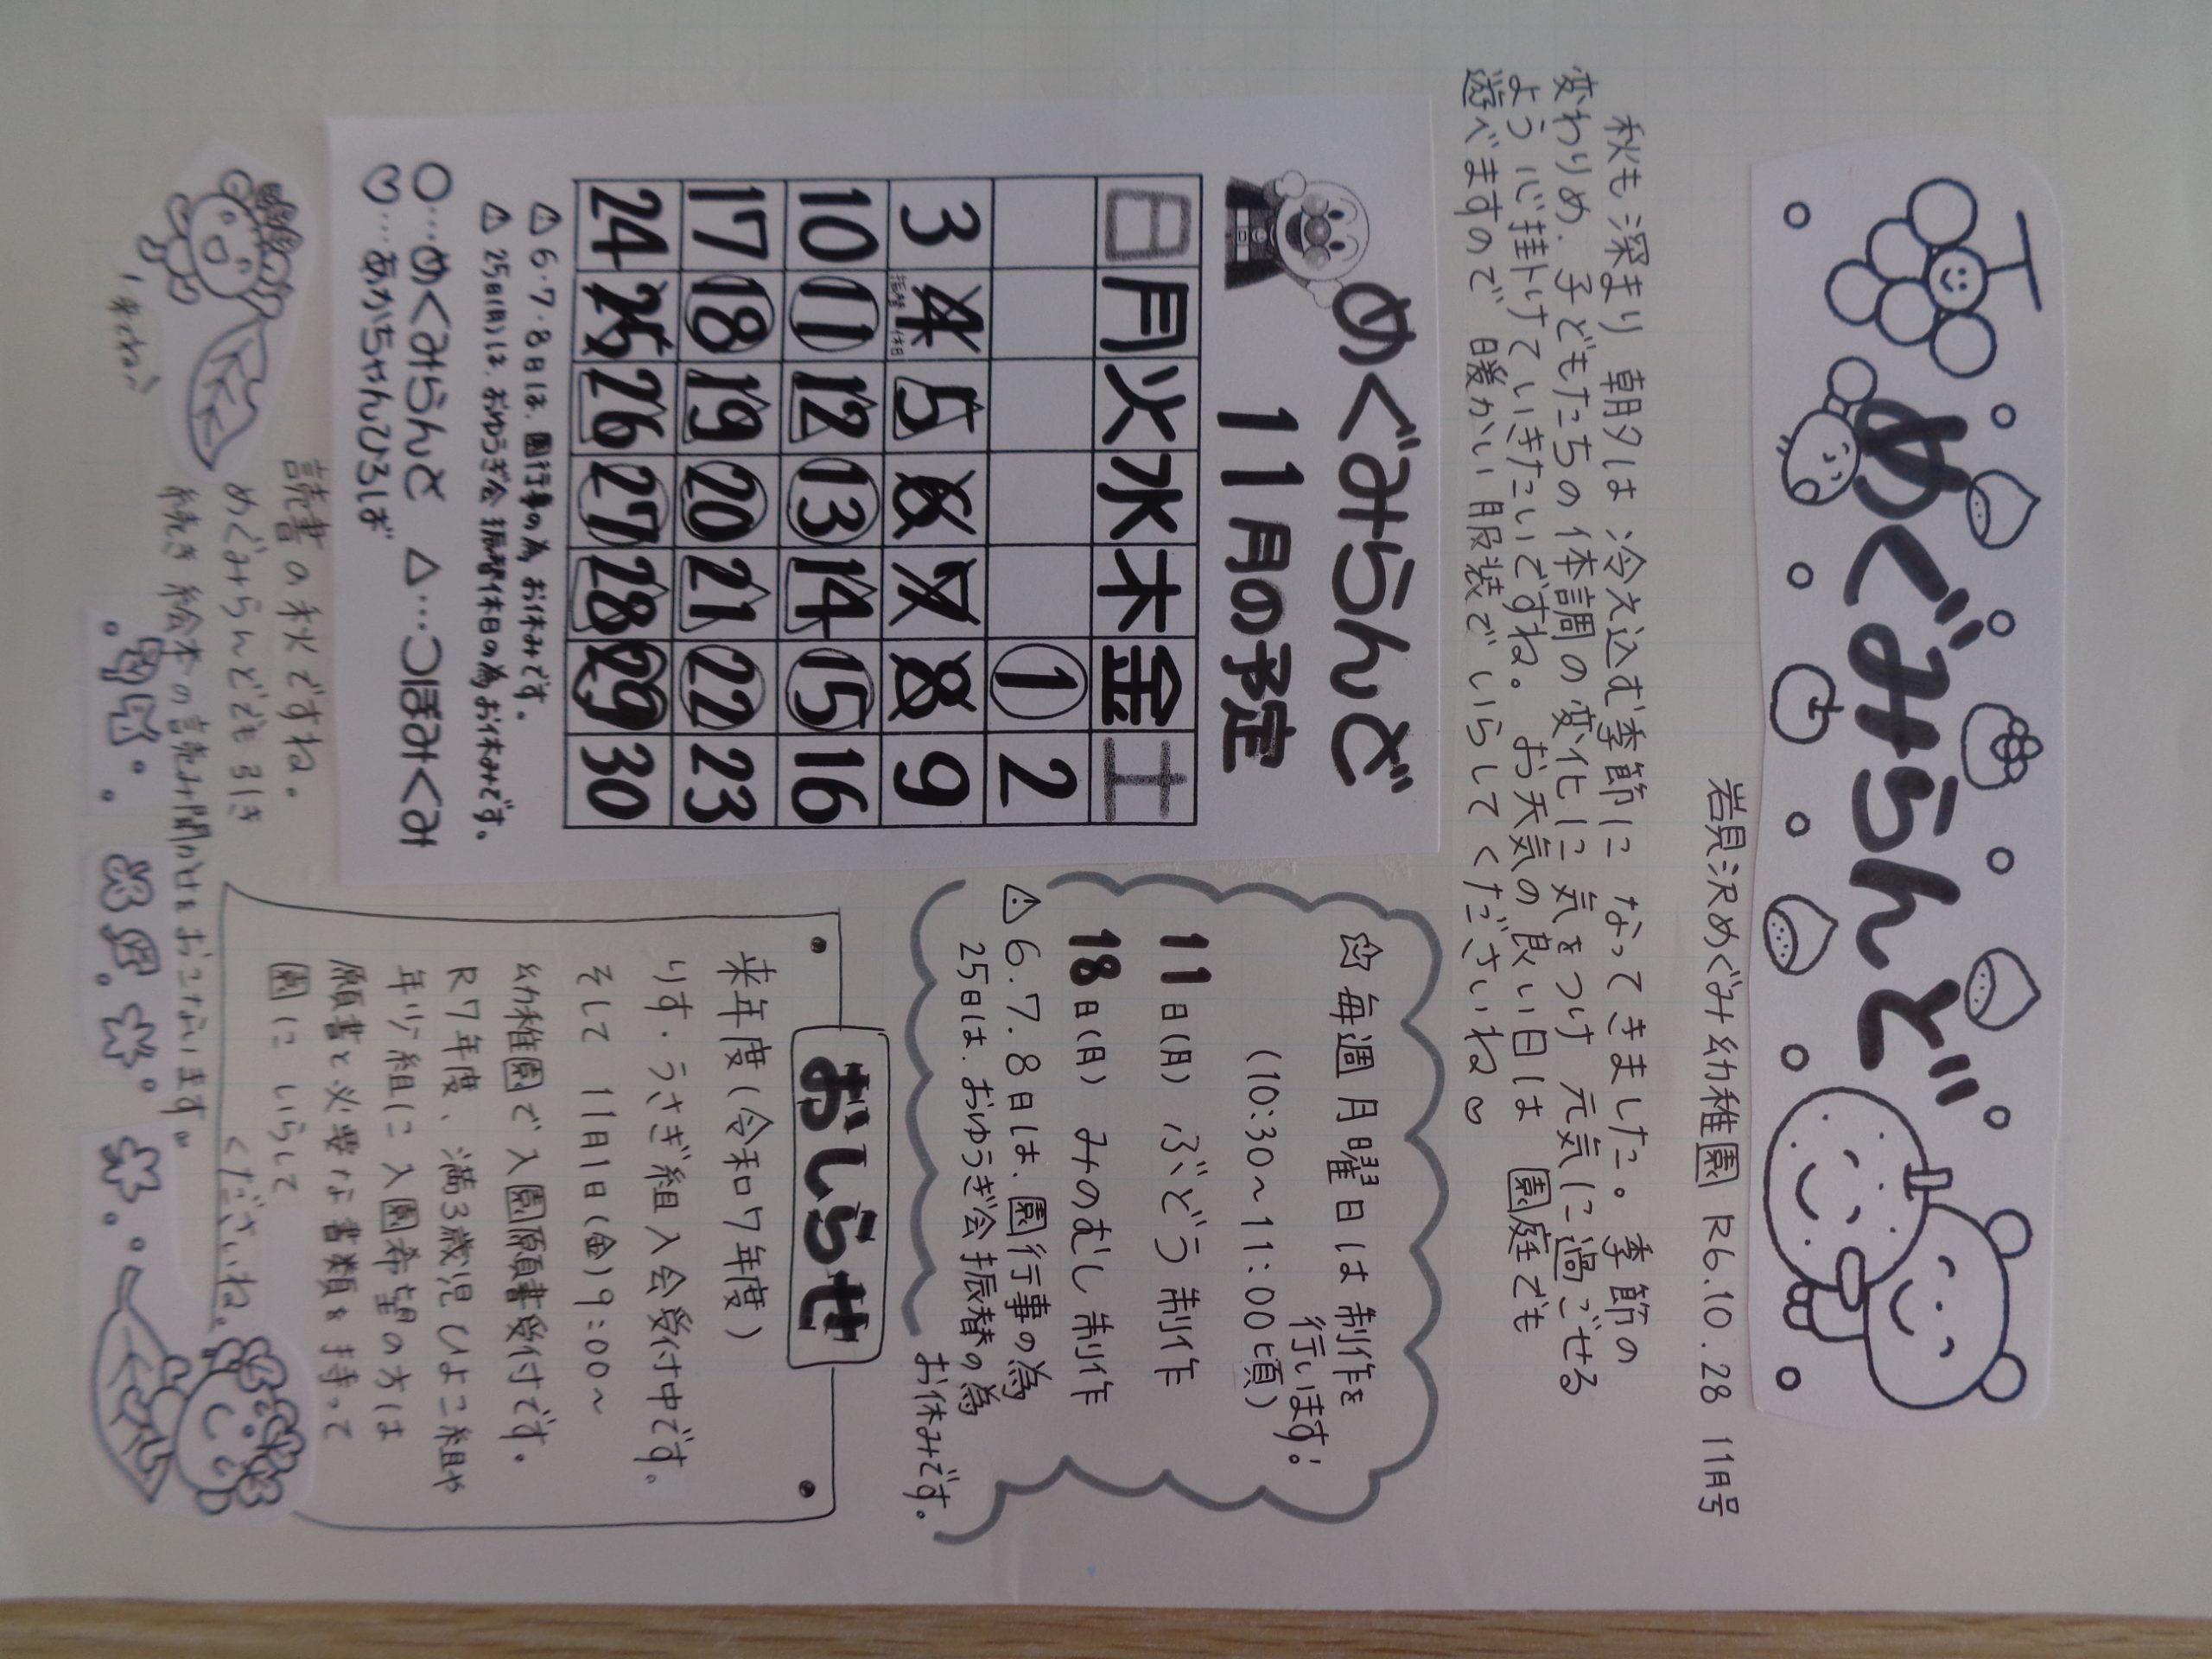 めぐみらんど
岩見沢めぐみ幼稚園 R6.10.28 11月号
秋も深まり 朝夕は 冷え込む季節に なってきました。季節の
変わりめ、子どもたちの体調の変化に気をつけ 元気に過ごせる
よう 心掛けていきたいですね。お天気の良い日は 園庭でも
遊べますので 暖かい服装でいらしてくださいね♡
めぐみらんど
11月の予定
日 月 火 水 木 金 土
1 2
3 4 5 6 7 8 9
振替休日
10 11 12 13 14 15 16
17 18 19 20 21 22 23
24 25 26 27 28 29 30
⚠6・7・8日は、園行事の為、お休みです。
⚠25日(月)は、おゆうぎ会 振替休日の為、お休みです。
○…めぐみらんど △…つぼみぐみ
♡…あかちゃんひろば
☆毎週月曜日は制作を
行います!
(10:30～11:00頃)
11日(月) ぶどう 制作
18日(月) みのむし 制作
⚠6.7.8日は、園行事の為
25日は、おゆうぎ会振替の為
お休みです。
おしらせ
来年度(令和7年度)
りす・うさぎ組入会受付中です。
そして 11月1日(金)9:00～
幼稚園で入園願書受付です。
R7年度、満3歳児ひよこ組や
年少組に入園希望の方は
願書と必要な書類を持って
園に いらして
くださいね。
読書の秋ですね。
めぐみらんどでも引き
続き 絵本の読み聞かせをおこないます。